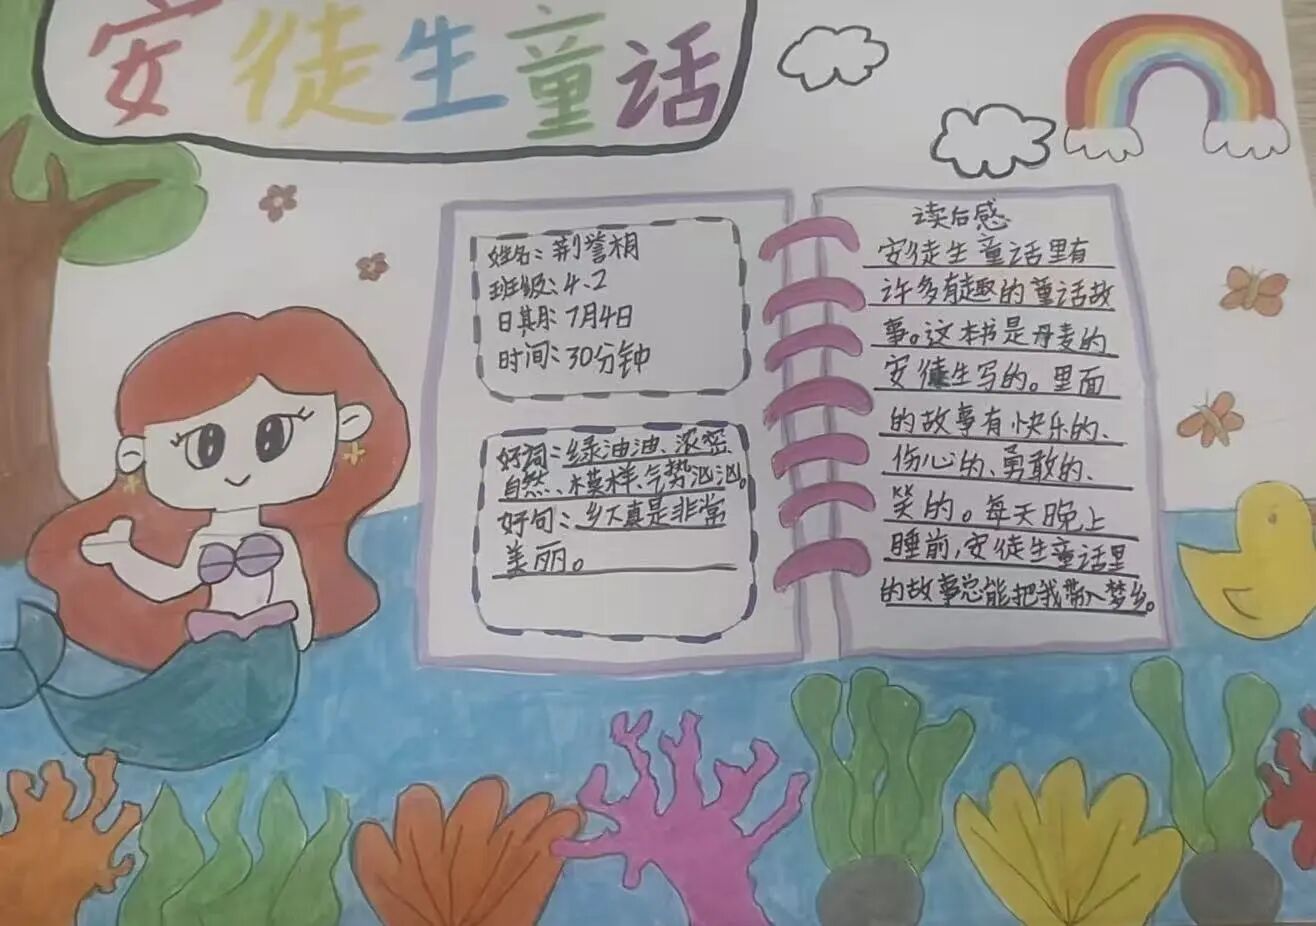 安徒生童话
姓名：荆誉桐
班级：4、2
日期：7月4日
时间：30分钟
好词：绿油油、浓密
自然、模样、气势汹汹。
好句：乡下真是非常
美丽。
读后感
安徒生童话里有
许多有趣的童话故
事。这本书是丹麦的
安徒生写的。里面
的故事有快乐的、
伤心的、勇敢的、
笑的。每天晚上
睡前，安徒生童话里
的故事总能把我带入梦乡。